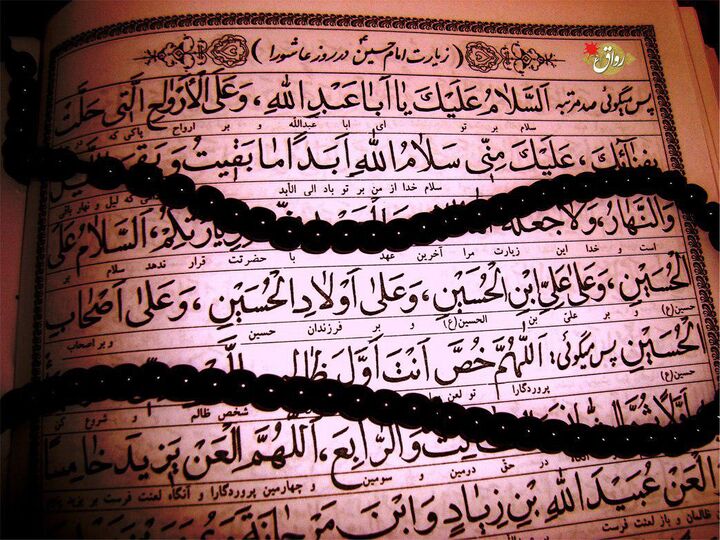 (زیارت امام حسین ع در روز عاشورا)
رواق
پس میگوئی صد مرتبه اَلسَّلامُ عَلَیْكَ یا اَبا عَبْدِ اللهِ، وَعَلَی الْاَرْواحِ الَّتی حَلَّتْ
سلام بر تو ای ابا عبدالله و بر ارواح پاکی که در
بِفِنائِكَ، عَلَیْكَ مِنّی سَلامُ اللهِ اَبَدًا ما بَقیتُ وَ بَقِیَ اللَّیْلُ
سلام خدا از من بر تو باد الی الأبد که لیل و نهار باقی
وَالنَّهارُ، وَلا جَعَلَهُ الْعَهْدِ زِیارَتِکُمْ، اَلسَّلامُ عَلَی
است و خدا این زیارت مرا آخرین عهد با حضرتت قرار ندهد سلام بر
الْحُسَیْنِ، وَعَلی عَلِیِّ ابْنِ الْحُسَیْنِ، وَعَلی اَوْلادِ الْحُسَیْنِ، وَعَلی اَصْحابِ
حسین(ع) و بر علیّ بن الحسین(ع) و بر فرزندان حسین و بر اصحاب
الْحُسَیْنِ پس میگوئی: اَللّهُمَّ خُصَّ اَنْتَ اَوَّلَ ظالِمٍ
حسین(ع) پروردگارا تو لعن شخص ظالم و شروع کن
اَوَّلاً وَالرّابِعَ، اَللّهُمَّ الْعَنْ یَزیدَ خامِسًا
در حق دومین و سومین و چهارمین پروردگارا و آنگاه لعنت فرست بر یزید
الْعَنْ عُبَیْدَ اللهِ بْنَ زِیادٍ وَابْنَ مَرْجانَةَ
ظالمان و باز لعنت فرست